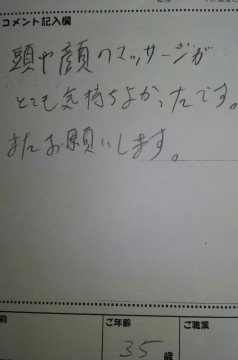 コメント記入欄
頭や顔のマッサージが
とても気持ちよかったです。
またお願いします。
前
ご年齢
ご職業
35 歳